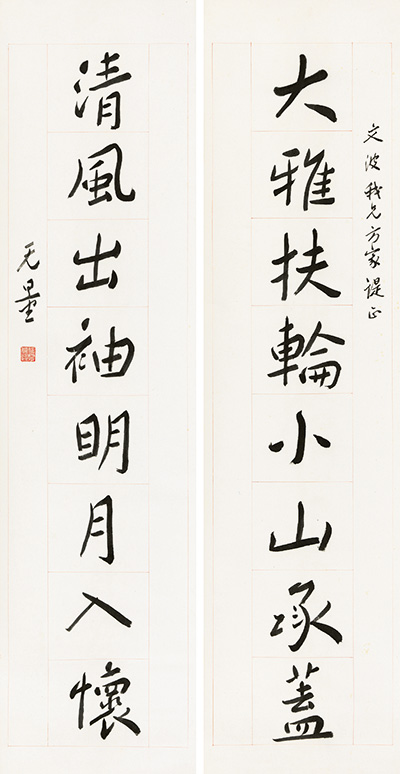 文波我兄方家諟正
大雅扶輪小山承蓋
清風出袖明月入懷
无量